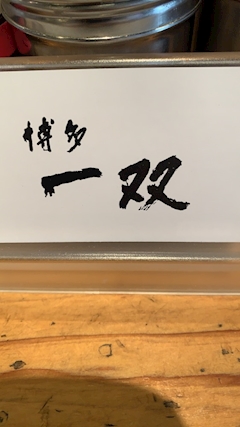 博多
一双